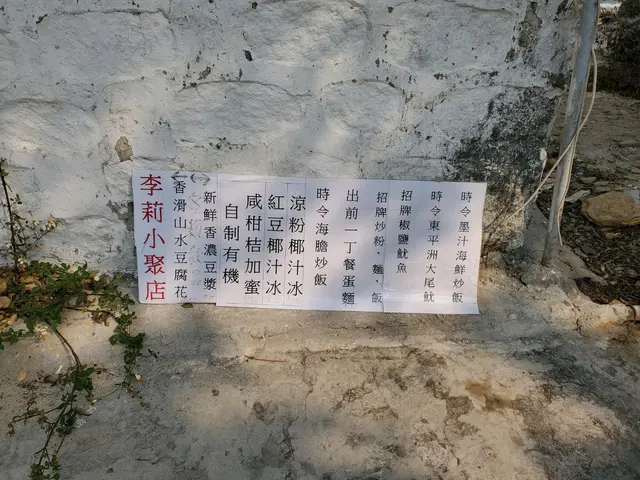 時令墨汁海鮮炒飯
時令東平洲大尾魷
招牌椒鹽魷魚
招牌炒粉 麵、飯
出前一丁餐蛋麵
時令海膽炒飯
涼粉椰汁冰
紅豆椰汁冰
咸柑桔加蜜
自制有機
新鮮香濃豆漿
香滑山水豆腐花
李莉小聚店